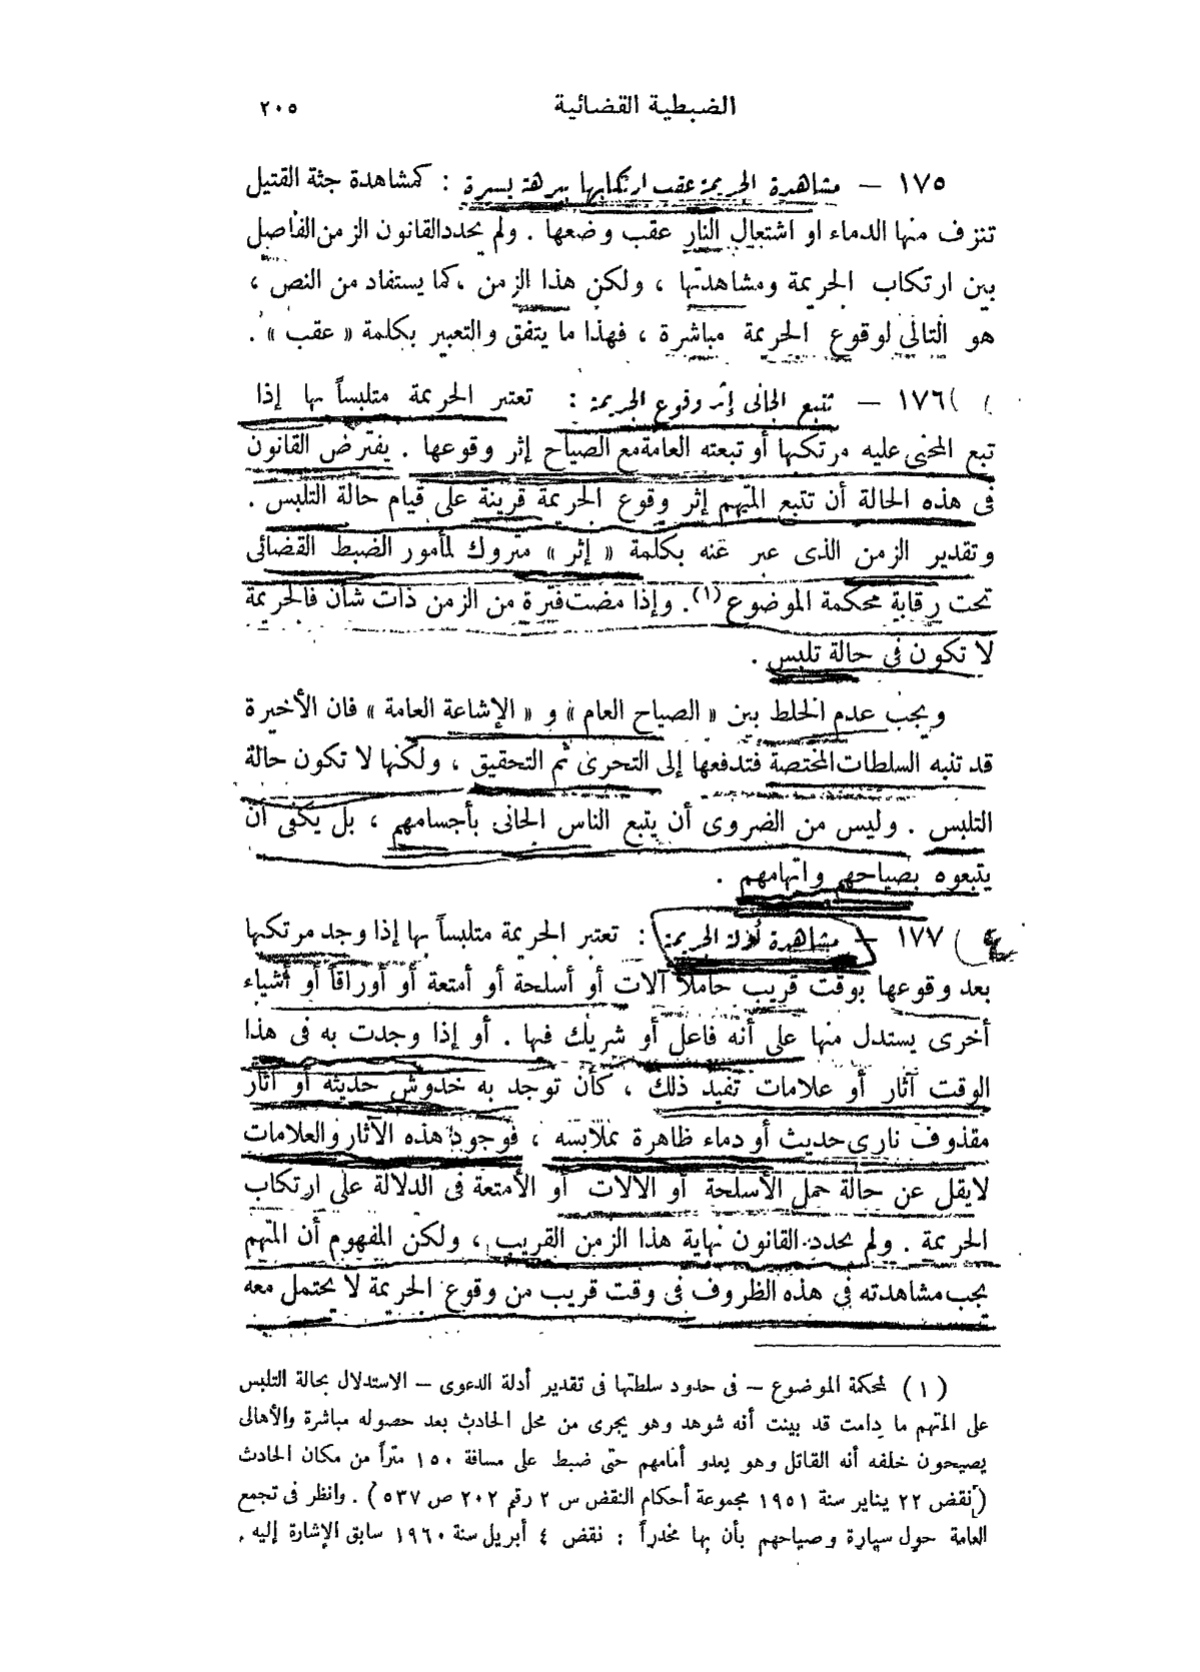 الضبطية القضائية ٢٠٥
١٧٥ — مشاهدة الجريمة عقب ارتكابها ببرهة يسيرة : كمشاهدة جثة القتيل
تنزف منها الدماء او اشتعال النار عقب وضعها . ولم يحدد القانون الزمن الفاصل
بين ارتكاب الجريمة ومشاهدتها ، ولكن هذا الزمن ، كما يستفاد من النص ،
هو التالى لوقوع الجريمة مباشرة ، فهذا ما يتفق والتعبير بكلمة « عقب » .
١٧٦ — تتبع الجانى إثر وقوع الجريمة : تعتبر الجريمة متلبساً بها إذا
تبع المجنى عليه مرتكبها أو تبعته العامة مع الصياح إثر وقوعها . يفترض القانون
فى هذه الحالة أن تتبع المتهم إثر وقوع الجريمة قرينة على قيام حالة التلبس .
وتقدير الزمن الذى عبر عنه بكلمة « إثر » متروك لمأمور الضبط القضائى
تحت رقابة محكمة الموضوع (١). وإذا مضت فترة من الزمن ذات شأن فالجريمة
لا تكون فى حالة تلبس .
ويجب عدم الخلط بين « الصياح العام » و « الإشاعة العامة » فان الأخيرة
قد تنبه السلطات المختصة فتدفعها إلى التحرى ثم التحقيق ، ولكنها لا تكون حالة
التلبس . وليس من الضروى أن يتبع الناس الجانى بأجسامهم ، بل يكفى أن
يتبعوه بصياحهم واتهامهم .
١٧٧ — مشاهدة أدلة الجريمة : تعتبر الجريمة متلبساً بها إذا وجد مرتكبها
بعد وقوعها بوقت قريب حاملاً آلات أو أسلحة أو أمتعة أو أوراقاً أو أشياء
أخرى يستدل منها على أنه فاعل أو شريك فيها . أو إذا وجدت به فى هذا
الوقت آثار أو علامات تفيد ذلك ، كأن توجد به خدوش حديثه أو آثار
مقذوف نارى حديث أو دماء ظاهرة بملابسه ، فوجود هذه الآثار والعلامات
لايقل عن حالة حمل الأسلحة أو الالات أو الأمتعة فى الدلالة على ارتكاب
الجريمة . ولم يحدد القانون نهاية هذا الزمن القريب ، ولكن المفهوم أن المتهم
يجب مشاهدته فى هذه الظروف فى وقت قريب من وقوع الجريمة لا يحتمل معه
(١) لمحكمة الموضوع – فى حدود سلطتها فى تقدير أدلة الدعوى – الاستدلال بحالة التلبس
على المتهم ما دامت قد بينت أنه شوهد وهو يجرى من محل الحادث بعد حصوله مباشرة والأهالى
يصيحون خلفه أنه القاتل وهو يعدو أمامهم حتى ضبط على مسافة ١٥٠ متراً من مكان الحادث
(نقض ٢٢ يناير سنة ١٩٥١ مجموعة أحكام النقض س ٢ رقم ٢٠٢ ص ٥٣٧) . وانظر فى تجمع
العامة حول سيارة وصياحهم بأن بها مخدراً : نقض ٤ أبريل سنة ١٩٦٠ سابق الإشارة إليه .